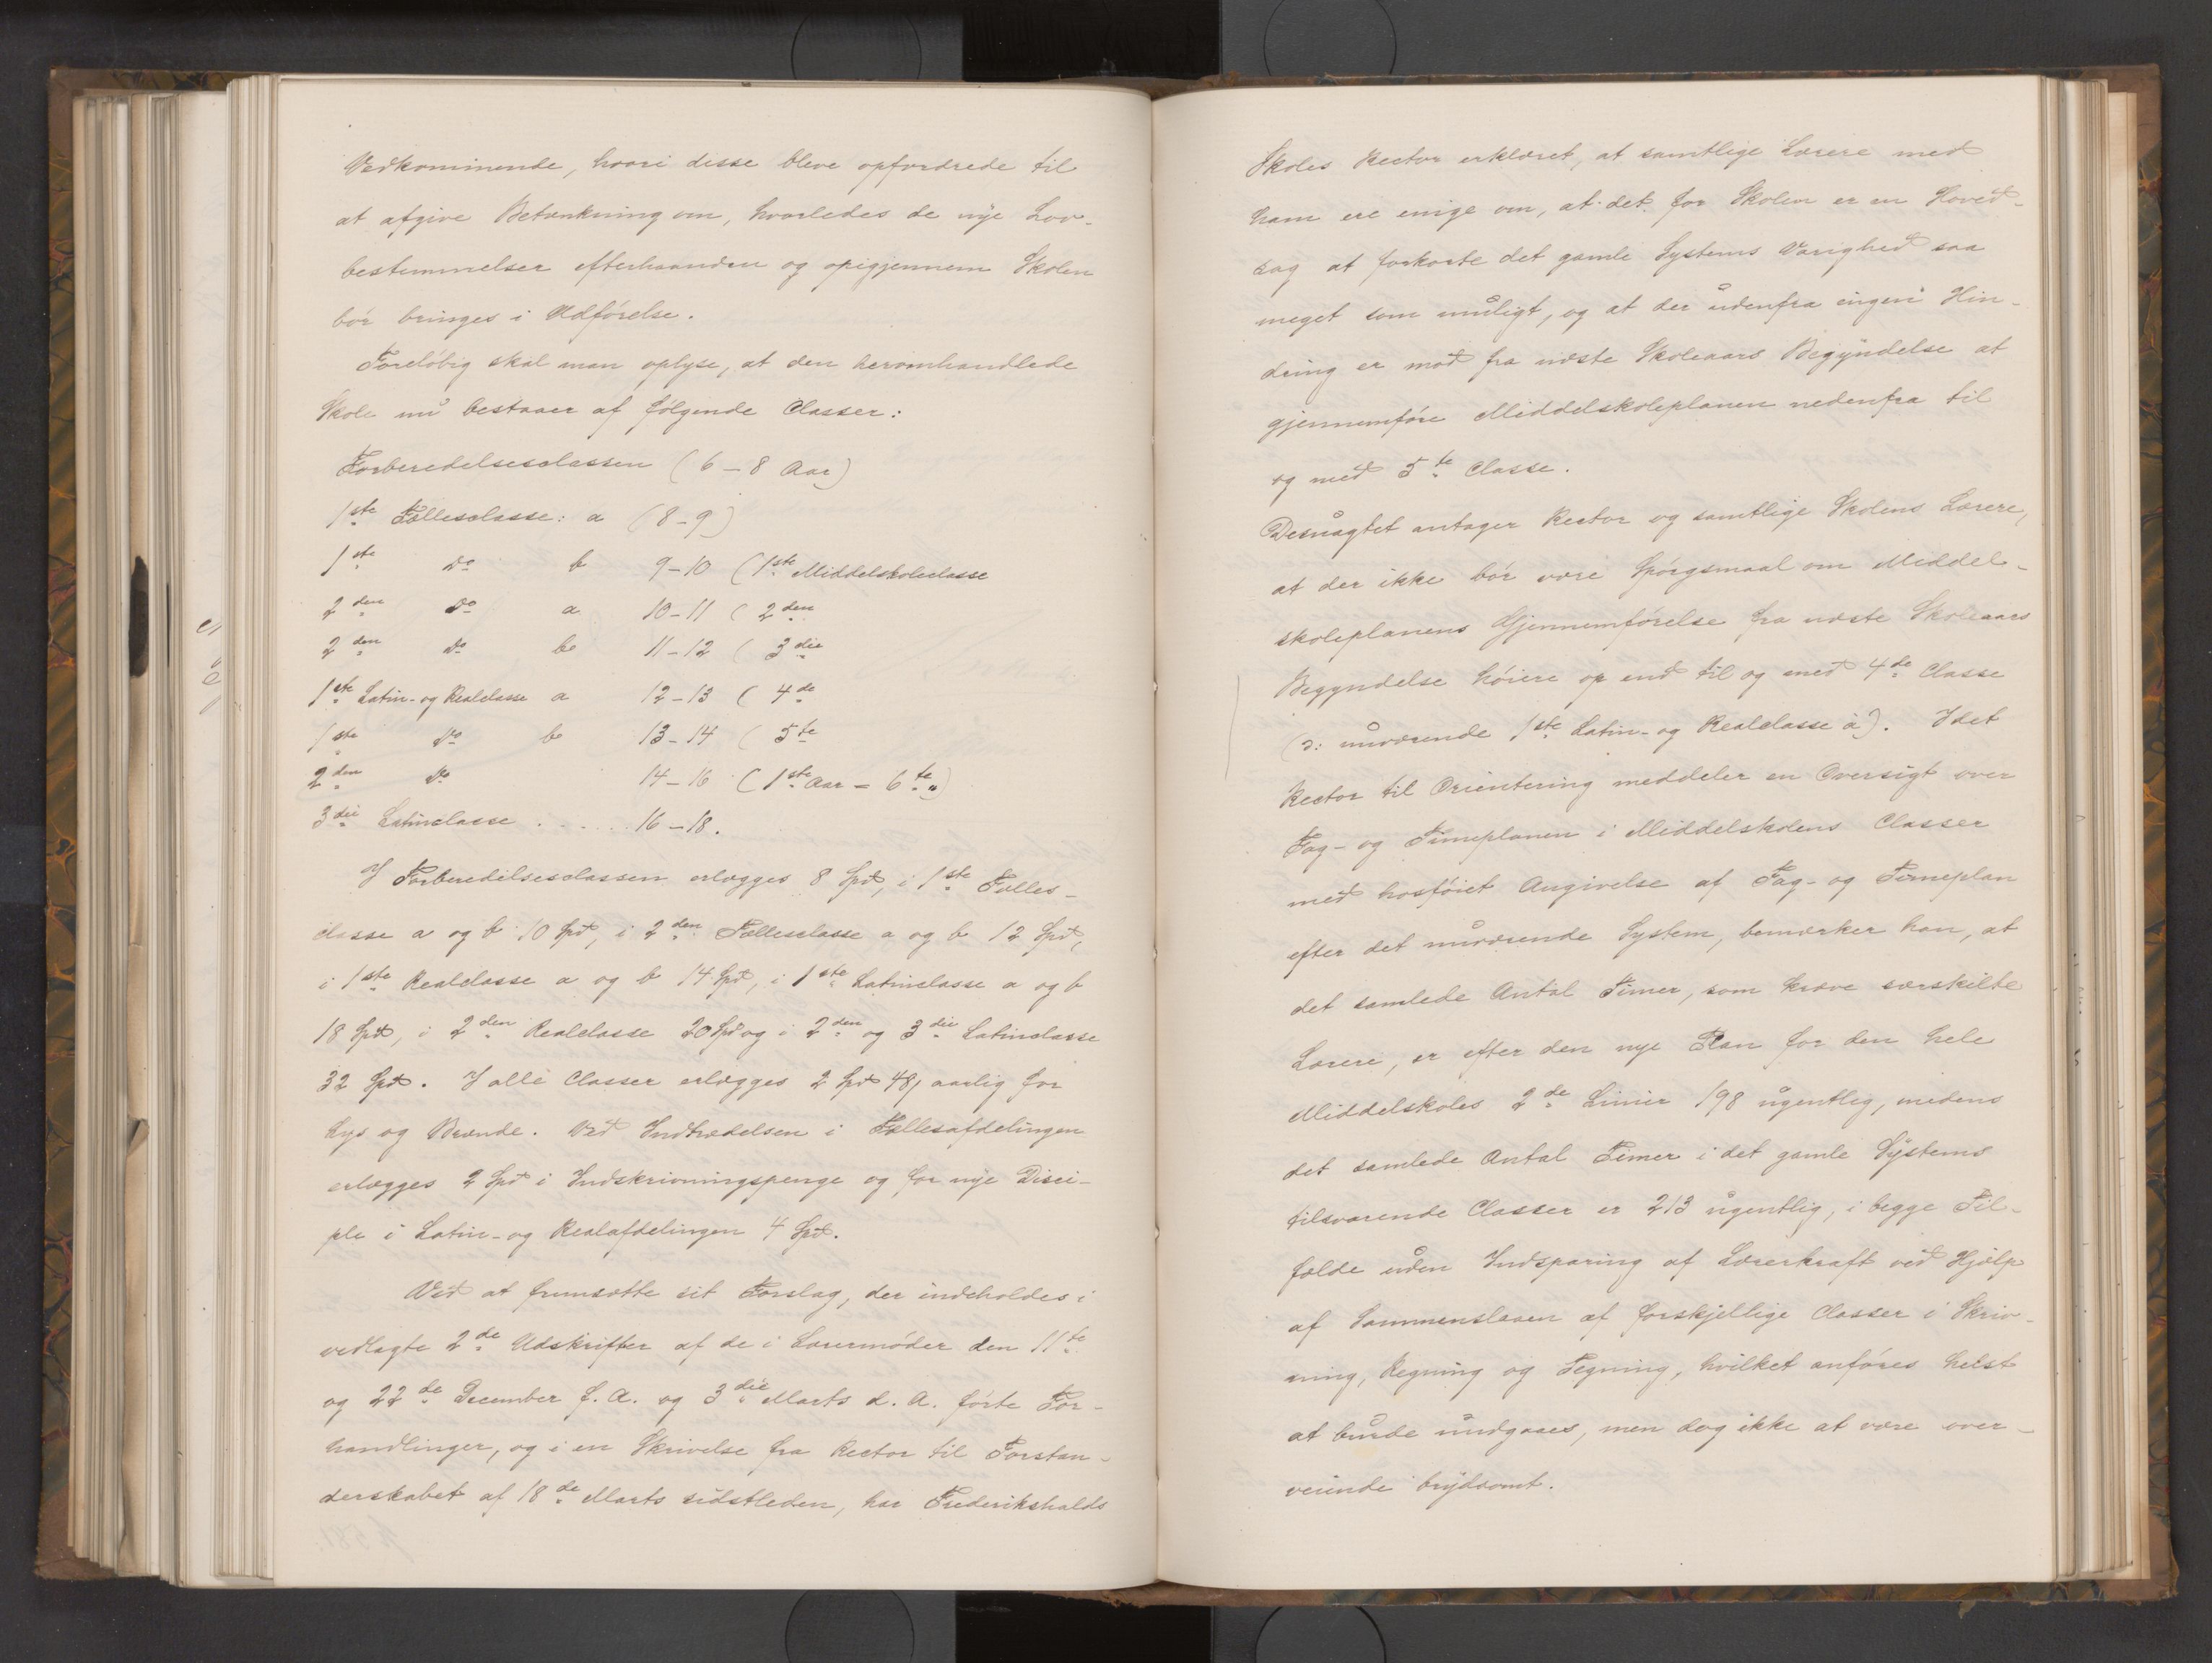 Vedkommende, hvori disse bleve opfordrede til
at afgive Betænkning om, hvorledes de nye Lov-
bestemmelser efterhaanden og opigjennem Skolen
bør bringes i Udførelse.
Foreløbig skal man oplyse, at den heromhandlede
Skole nu bestaaer af følgende Classer:
Forberedelsesclassen (6-8 Aar)
1ste Fællesclasse: a (8-9)
1ste Do b 9-10 (1ste Middelskoleclasse
2den Do a 10-11 (2den
2den Do b 11-12 (3die
1ste Latin- og Realclasse a 12-13 (4de
1ste Do b 13-14 (5te
2den Do 14-16 (1ste Aar = 6te ")
3die Latinclasse ..... 16-18.
I Forberedelsesclassen erlægges 8 Spd, i 1ste Fælles-
classe a og b 10 Spd, i 2den Fællesclasse a og b 12 Spd,
i 1ste Realclasse a og b 14 Spd, i 1ste Latinclasse a og b
18 Spd, i 2den Realclasse 20 Spd og i 2den og 3die Latinclasse
32 Spd. I alle Classer erlægges 2 Spd 48 aarlig for
Lys og Brænde. Ved Indtrædelsen i Fællesafdelingen
erlægges 2 Spd i Indskrivningspenge og for nye Disci-
ple i Latin- og Realafdelingen 4 Spd.
Ved at fremsætte sit Forslag, der indeholdes i
vedlagte 2de Udskrifter af de i Lærermøder den 11te
og 22de December f. A. og 3die Marts d. A. førte For-
handlinger, og i en Skrivelse fra Rector til Forstan-
derskabet af 18de Marts sidstleden, har Frederikshalds
Skoles Rector erklæret, at samtlige Lærere med
ham ere enige om, at det for Skolen er en Hoved-
sag at forkorte det gamle Systems Varighed saa
meget som muligt, og at der udenfra ingen Hin-
dring er mod fra næste Skoleaars Begyndelse at
gjennemføre Middelskoleplanen nedenfra til
og med 5te Classe.
Desuagtet antager Rector og samtlige Skolens Lærere,
at der ikke bør være Spørgsmaal om Middel-
skoleplanens Gjennemførelse fra næste Skoleaars
Begyndelse høiere op end til og med 4de Classe
(ɔ: nuværende 1ste Latin- og Realclasse a). Idet
Rector til Orientering meddeler en Oversigt over
Fag- og Timeplanen i Middelskolens Classer
med hosføiet Angivelse af Fag- og Timeplan
efter det nuværende System, bemærker han, at
det samlede Antal Timer, som kræve særskilte
Lærere, er efter den nye Plan for den hele
Middelskoles 2de Linier 198 ugentlig, medens
det samlede Antal Timer i det gamle Systems
tilsvarende Classer er 213 ugentlig, i begge Til-
fælde uden Indsparing af Lærerkraft ved Hjælp
af Sammenslaaen af forskjellige Classer i Skriv-
ning, Regning og Tegning, hvilket anføres helst
at burde undgaaes, men dog ikke at være over-
veiende brydsomt.